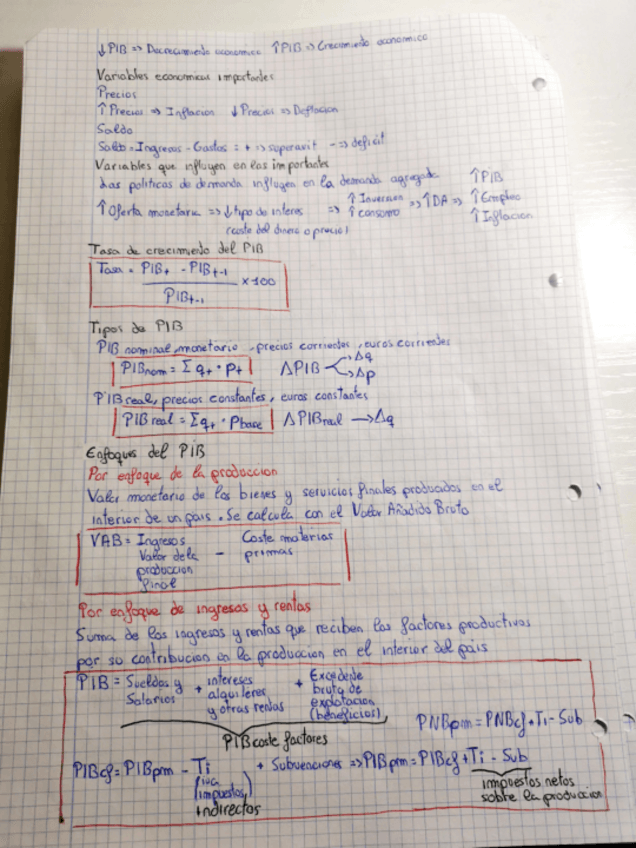 ↓PIB => Decrecimiento economico ↑PIB => Crecimiento economico
Variables economicas importantes
Precios
↑Precios => Inflacion ↓Precios => Deflacion
Saldo
Saldo = Ingresos - Gastos = + => superavit - => deficit
Variables que influyen en las importantes
Las politicas de demanda influyen en la demanda agregada ↑PIB
↑Oferta monetaria => ↓tipo de interes => ↑Inversion ↑consumo => ↑DA => ↑Empleo
(coste del dinero o precio) ↑Inflacion
Tasa de crecimiento del PIB
Tasa = PIBt - PIBt-1 / PIBt-1 x 100
Tipos de PIB
PIB nominal, monetario, precios corrientes, euros corrientes
PIBnom = Σ qt · Pt ΔPIB → Δq → Δp
PIB real, precios constantes, euros constantes
PIB real = Σqt · Pbase ΔPIBreal → Δq
Enfoques del PIB
Por enfoque de la produccion
Valor monetario de los bienes y servicios finales producidos en el
interior de un pais. Se calcula con el Valor Añadido Bruto
VAB = Ingresos - Coste materias
Valor de la primas
produccion
final
Por enfoque de ingresos y rentas
Suma de los ingresos y rentas que reciben los factores productivos
por su contribucion en la produccion en el interior del pais
PIB = Sueldos y + intereses + Excedente
Salarios alquileres bruto de
y otras rentas explotacion
(beneficios) PNBpm = PNBcf + Ti - Sub
PIB coste factores
PIBcf = PIBpm - Ti + Subvenciones => PIBpm = PIBcf + Ti - Sub
(iva impuestos netos
impuestos) sobre la produccion
indirectos